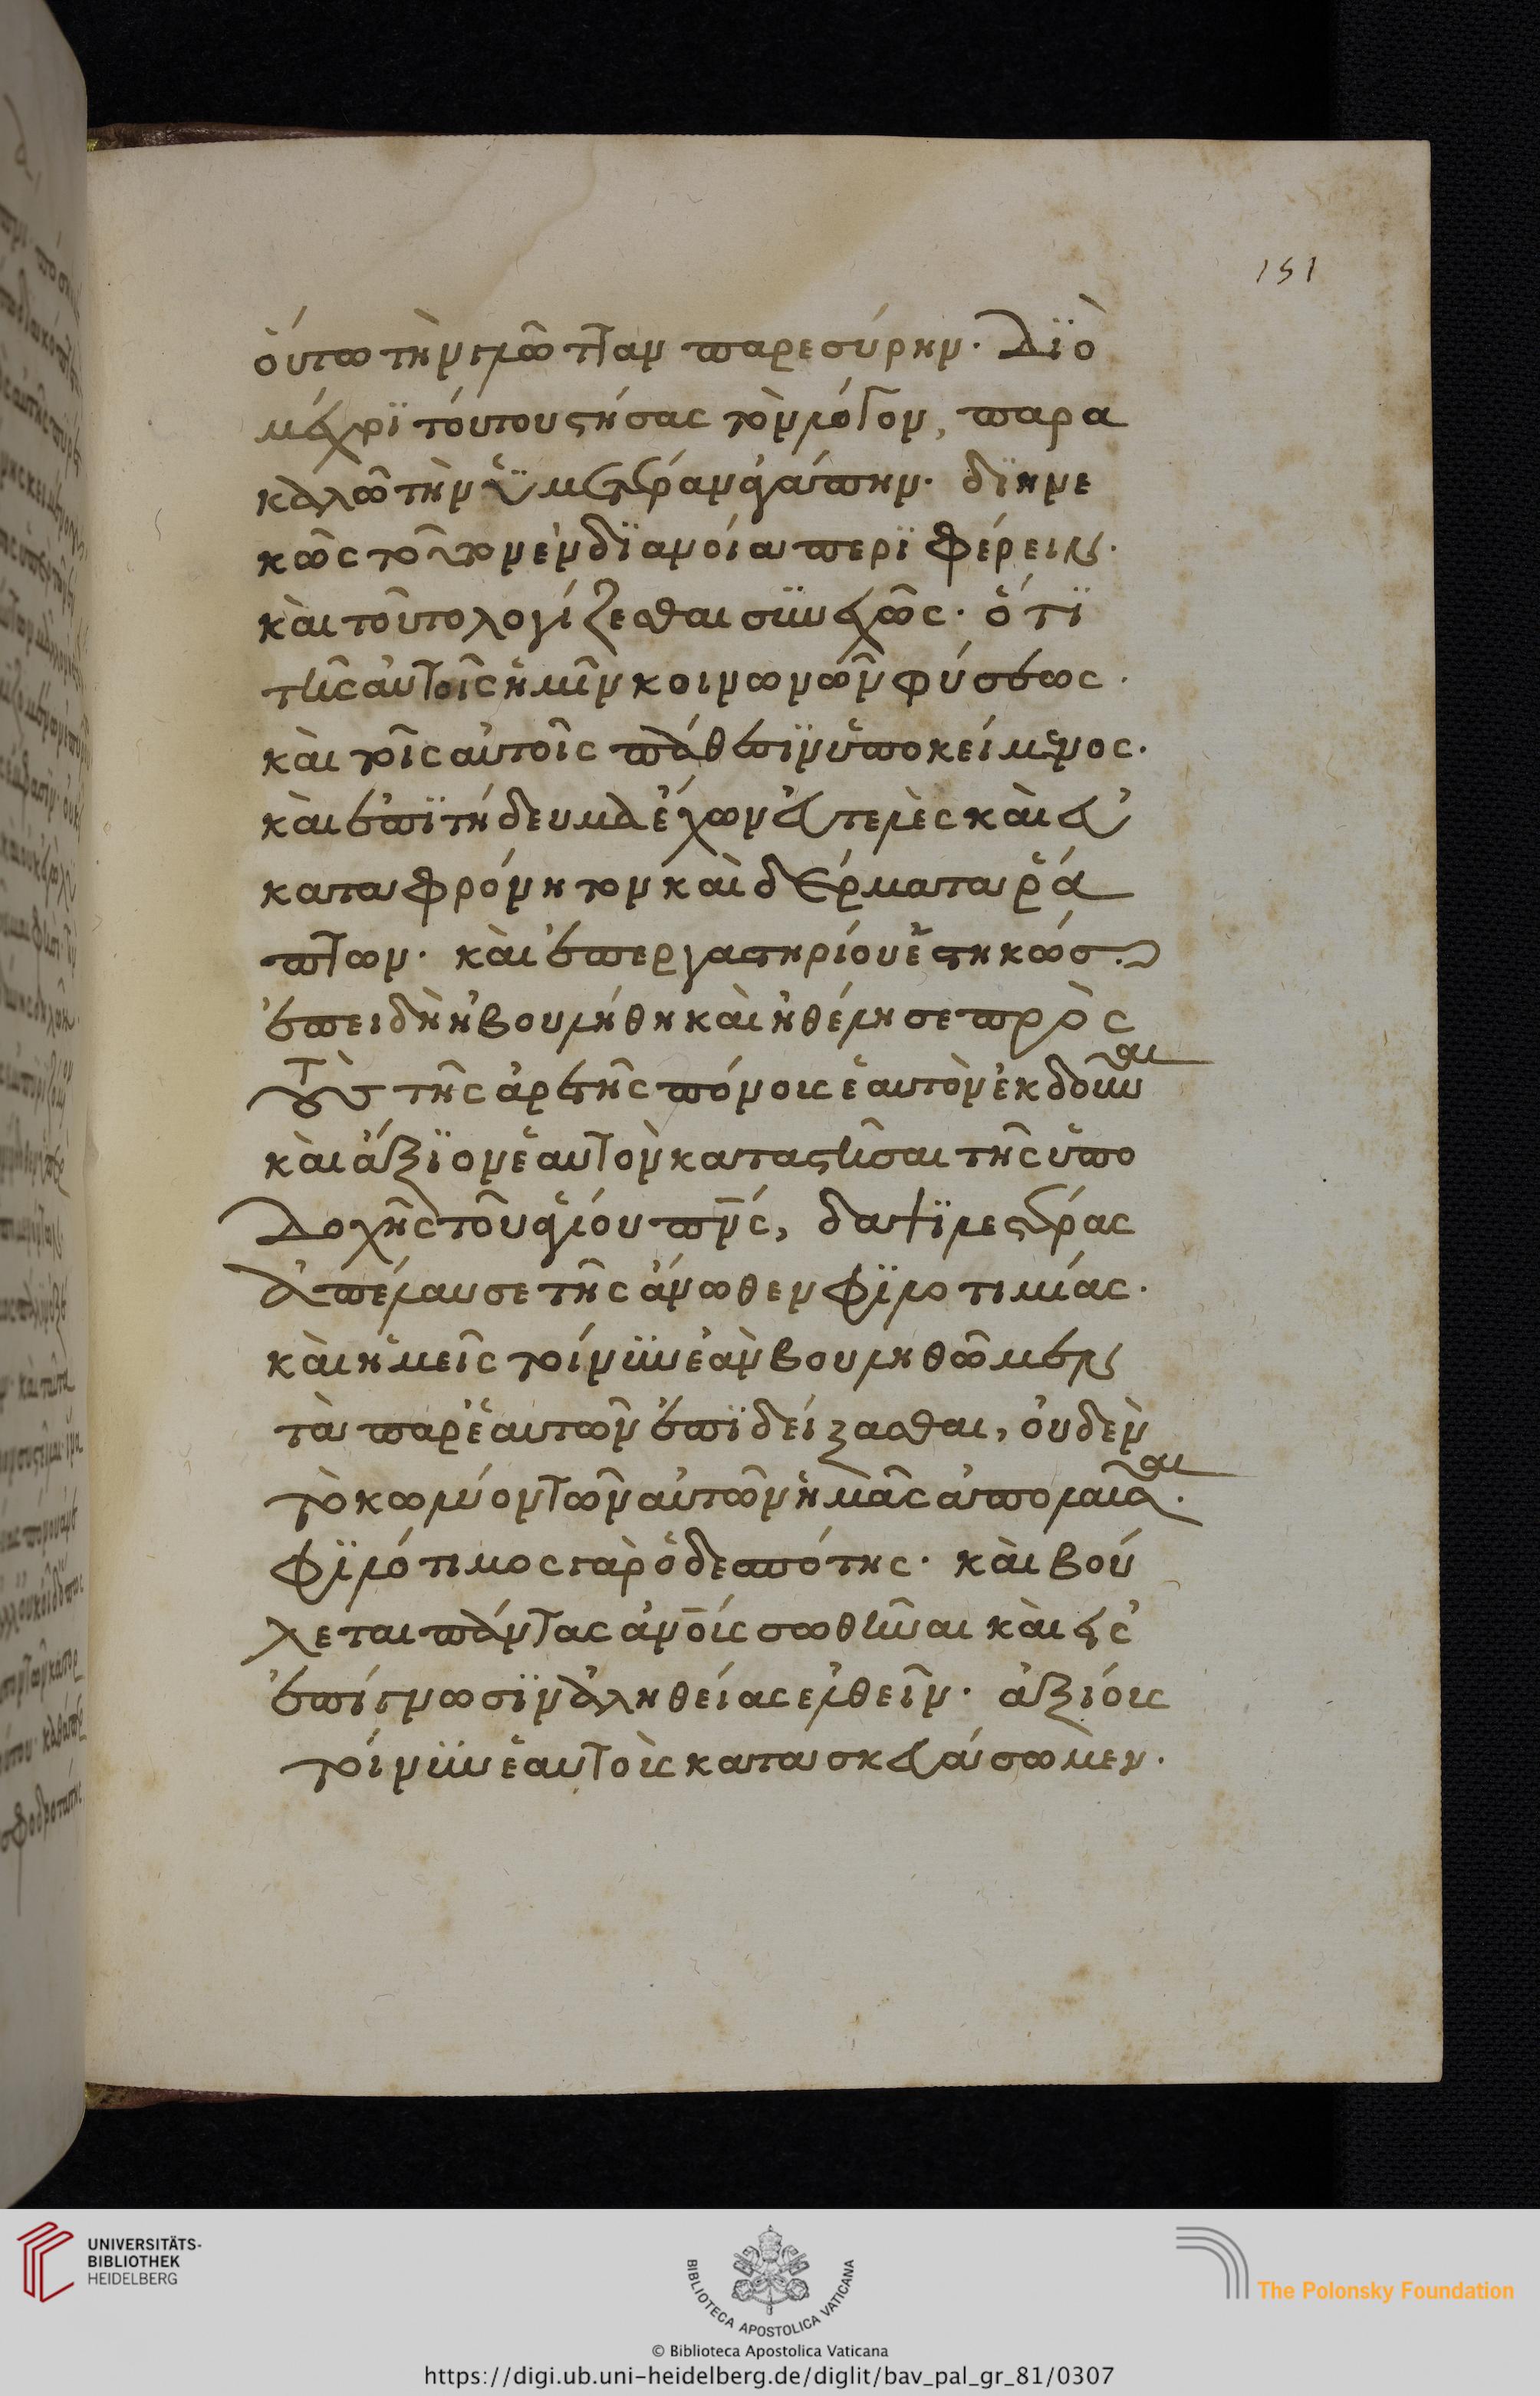 151
ὁύτω τὴν γλῶτταν παρεσύρην. Διὸ
μέχρι τόυτου στήσας τὸν λόγον, παρα
καλῶ τὴν ὑμετέραν ἀγάπην. διηνε
κῶς τοῦτον ἐν διανοία περιφέρειν.
κὰι τοῦτο λογίζεσθαι συνεχῶς. ὅτι
τῆς αὐτοῖς ἡμῖν κοινωνῶν φύσεως.
κὰι τοῖς αὐτοῖς πάθεσιν ὑποκείμενος.
κὰι ἐπιτήδευμα ἔχων ἐυτελὲς κὰι ἐυ
καταφρόνητον κὰι δέρματα ῥά
πτων. κὰι ἐπ εργαστηρίου ἑστηκώς.
ἐπειδὴ ἠβουλήθη κὰι ἠθέλησε πρὸς
τοὺς τῆς ἀρετῆς πόνους ἑαυτὸν ἐκδοῦναι
κὰι ἄξιον ἑαυτὸν καταστῆσαι τῆς ὑπο
δοχῆς τοῦ ἁγίου πνς, δαψιλεστέρας
ἀπέλαυσε τῆς ἄνωθεν φιλοτιμίας.
κὰι ἡμεῖς τοίνυν ἐὰν βουληθῶμεν
τὰ παρ ἑαυτῶν ἐπιδείξασθαι, ὀυδὲν
τὸ κωλύον τῶν αὐτῶν ἡμᾶς ἀπολαῦσαι.
φιλότιμος γὰρ ὁ δεσπότης. κὰι βού
λεται πάντας ἀνους σωθῆναι κὰι εἰς
ἐπίγνωσιν ἀληθείας ἐλθεῖν. ἀξίους
τοίνυν ἑαυτοὺς κατασκευάσωμεν.
UNIVERSITÄTS-
BIBLIOTHEK
HEIDELBERG
BIBLIOTECA APOSTOLICA VATICANA
The Polonsky Foundation
© Biblioteca Apostolica Vaticana
https://digi.ub.uni-heidelberg.de/diglit/bav_pal_gr_81/0307